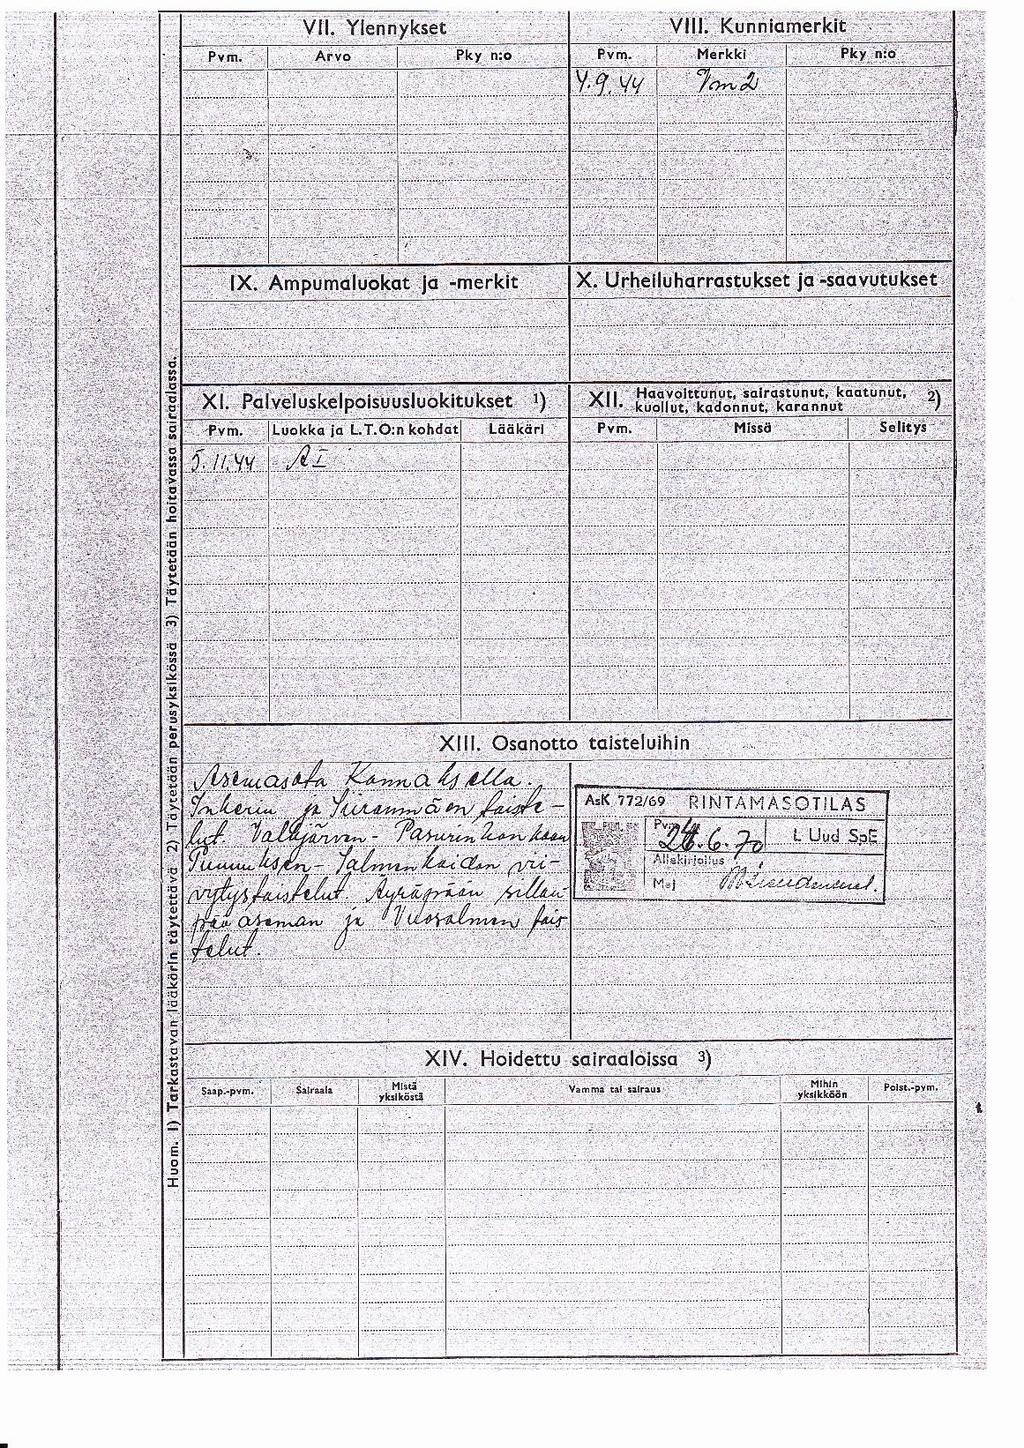 VII. Ylennykset
Pvm. Arvo Pky n:o
VIII. Kunniamerkit
Pvm. Merkki Pky n:o
4.9.44 Vm2
IX. Ampumaluokat ja -merkit
X. Urheiluharrastukset ja -saavutukset
XI. Palveluskelpoisuusluokitukset 1)
Pvm. Luokka ja L.T.O:n kohdat Lääkäri
5.11.44 A I
XII. Haavoittunut, sairastunut, kaatunut, kuollut, kadonnut, karannut 2)
Pvm. Missä Selitys
XIII. Osanotto taisteluihin
Asemasota Kannaksella.
Inkerin ja Siiranmäen taiste-
lut. Valkjärven-Pasurinkankaan
Punnuksen-Salmenkaidan vii-
vytystaistelut. Äyräpään sillan-
pääaseman ja Vuosalmen tais
telut.
AsK 772/69 RINTAMASOTILAS
Pvm 24.6.70 L Uud SpE
Allekirjoitus
Maj
XIV. Hoidettu sairaaloissa 3)
Saap.-pvm. Sairaala Mistä yksiköstä Vamma tai sairaus Mihin yksikköön Poist.-pvm.
Huom. 1) Tarkastavan lääkärin täytettävä 2) Täytetään perusyksikössä 3) Täytetään hoitavassa sairaalassa.